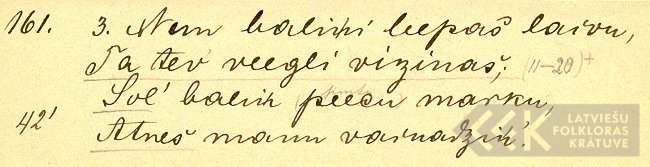 161. 3. Nem baliņi leepas laivu,
Ta tev veegli vizinas; (11–20)+
Sol' baliņ peecu marku,
42' Atnes manu vaiņadziņ'.
LATVIEŠU
FOLKLORAS
KRĀTUVE